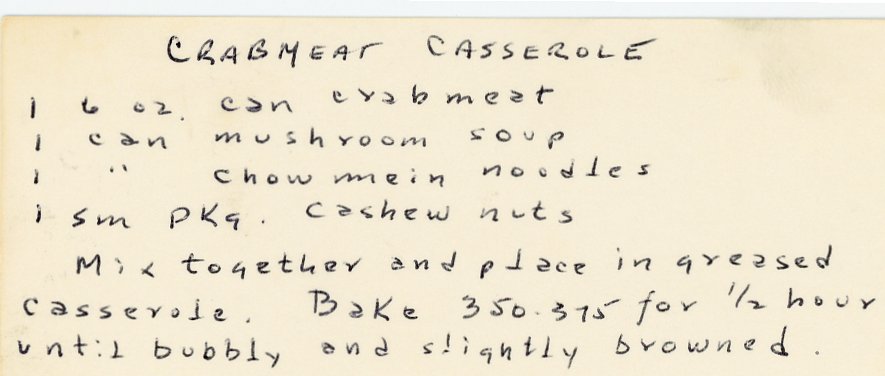 CRABMEAT CASSEROLE
1 6 oz. can crabmeat
1 can mushroom soup
1 " chow mein noodles
1 sm pkg. cashew nuts
Mix together and place in greased
casserole. Bake 350-375 for 1/2 hour
until bubbly and slightly browned.